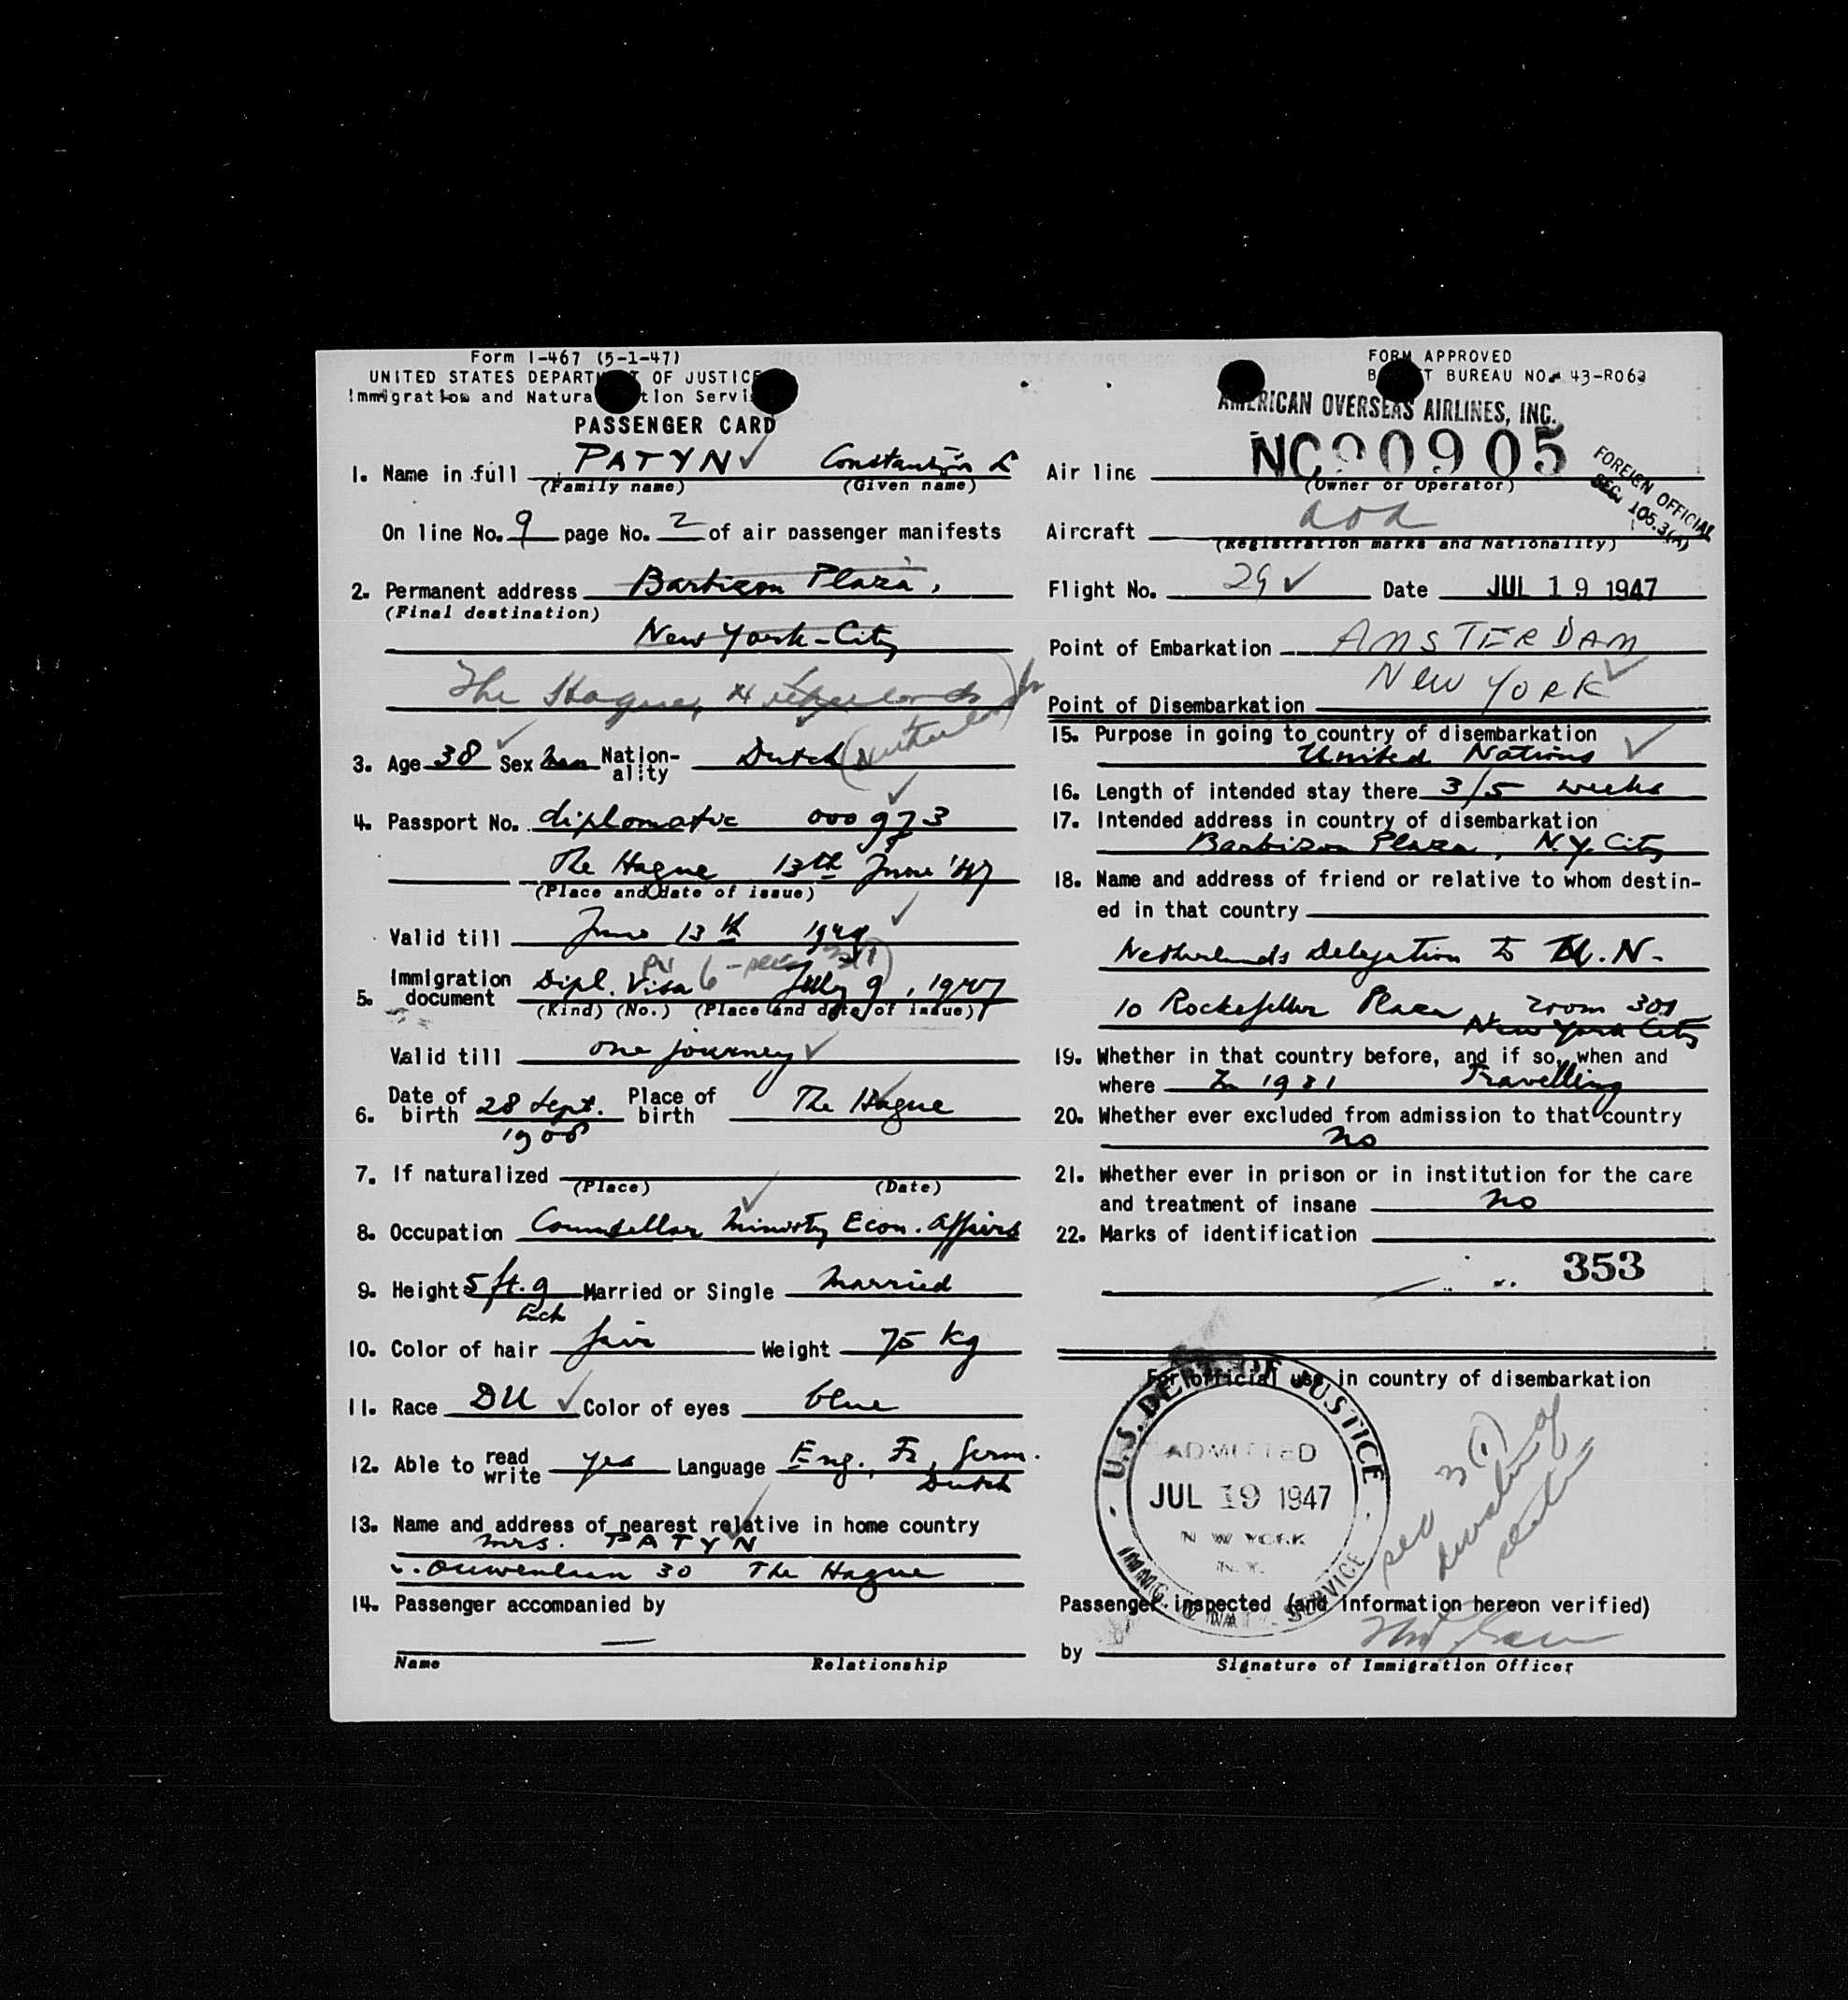 Form I-467 (5-1-47)
UNITED STATES DEPARTMENT OF JUSTICE
Immigration and Naturalization Service
PASSENGER CARD
1. Name in full PATYN Constantijn L
(Family name) (Given name)
On line No. 9 page No. 2 of air passenger manifests
2. Permanent address Barbizon Plaza,
(Final destination)
New York-City
The Hague, Netherlands
3. Age 38 Sex Man Nationality Dutch (Netherland)
4. Passport No. diplomatic 000973
The Hague 13th June '47
(Place and date of issue)
Valid till June 13th 1949
5. Immigration document Dipl. Visa July 9, 1947
(Kind) (No.) (Place and date of issue)
Valid till one journey
6. Date of birth 28 Sept. 1908 Place of birth The Hague
7. If naturalized
(Place) (Date)
8. Occupation Counsellor Ministry Econ. Affairs
9. Height 5 ft. 9 inch Married or Single Married
10. Color of hair fair Weight 75 kg
11. Race DU Color of eyes blue
12. Able to read write yes Language Eng., Fr, Germ. Dutch
13. Name and address of nearest relative in home country
Mrs. PATYN
30 The Hague
14. Passenger accompanied by
—
Name Relationship
FORM APPROVED
BUDGET BUREAU NO. 43-R063
AMERICAN OVERSEAS AIRLINES, INC.
Air line NC90905
(Owner or Operator)
FOREIGN OFFICIAL
SEC. 105.3(A)
Aircraft AOA
(Registration marks and Nationality)
Flight No. 29 Date JUL 19 1947
Point of Embarkation AMSTERDAM
Point of Disembarkation NEW YORK
15. Purpose in going to country of disembarkation
United Nations
16. Length of intended stay there 3/5 weeks
17. Intended address in country of disembarkation
Barbizon Plaza, N.Y. City
18. Name and address of friend or relative to whom destin-
ed in that country
Netherlands Delegation to U.N.
10 Rockefeller Plaza, room 301
New York City
19. Whether in that country before, and if so, when and
where In 1931 Travelling
20. Whether ever excluded from admission to that country
no
21. Whether ever in prison or in institution for the care
and treatment of insane no
22. Marks of identification
353
For official use in country of disembarkation
U.S. DEPT. OF JUSTICE
ADMITTED
JUL 19 1947
NEW YORK
N.Y.
IMMIG. & NAT. SERVICE
sec 3(1)
Passenger inspected (and information hereon verified)
by
Signature of Immigration Officer